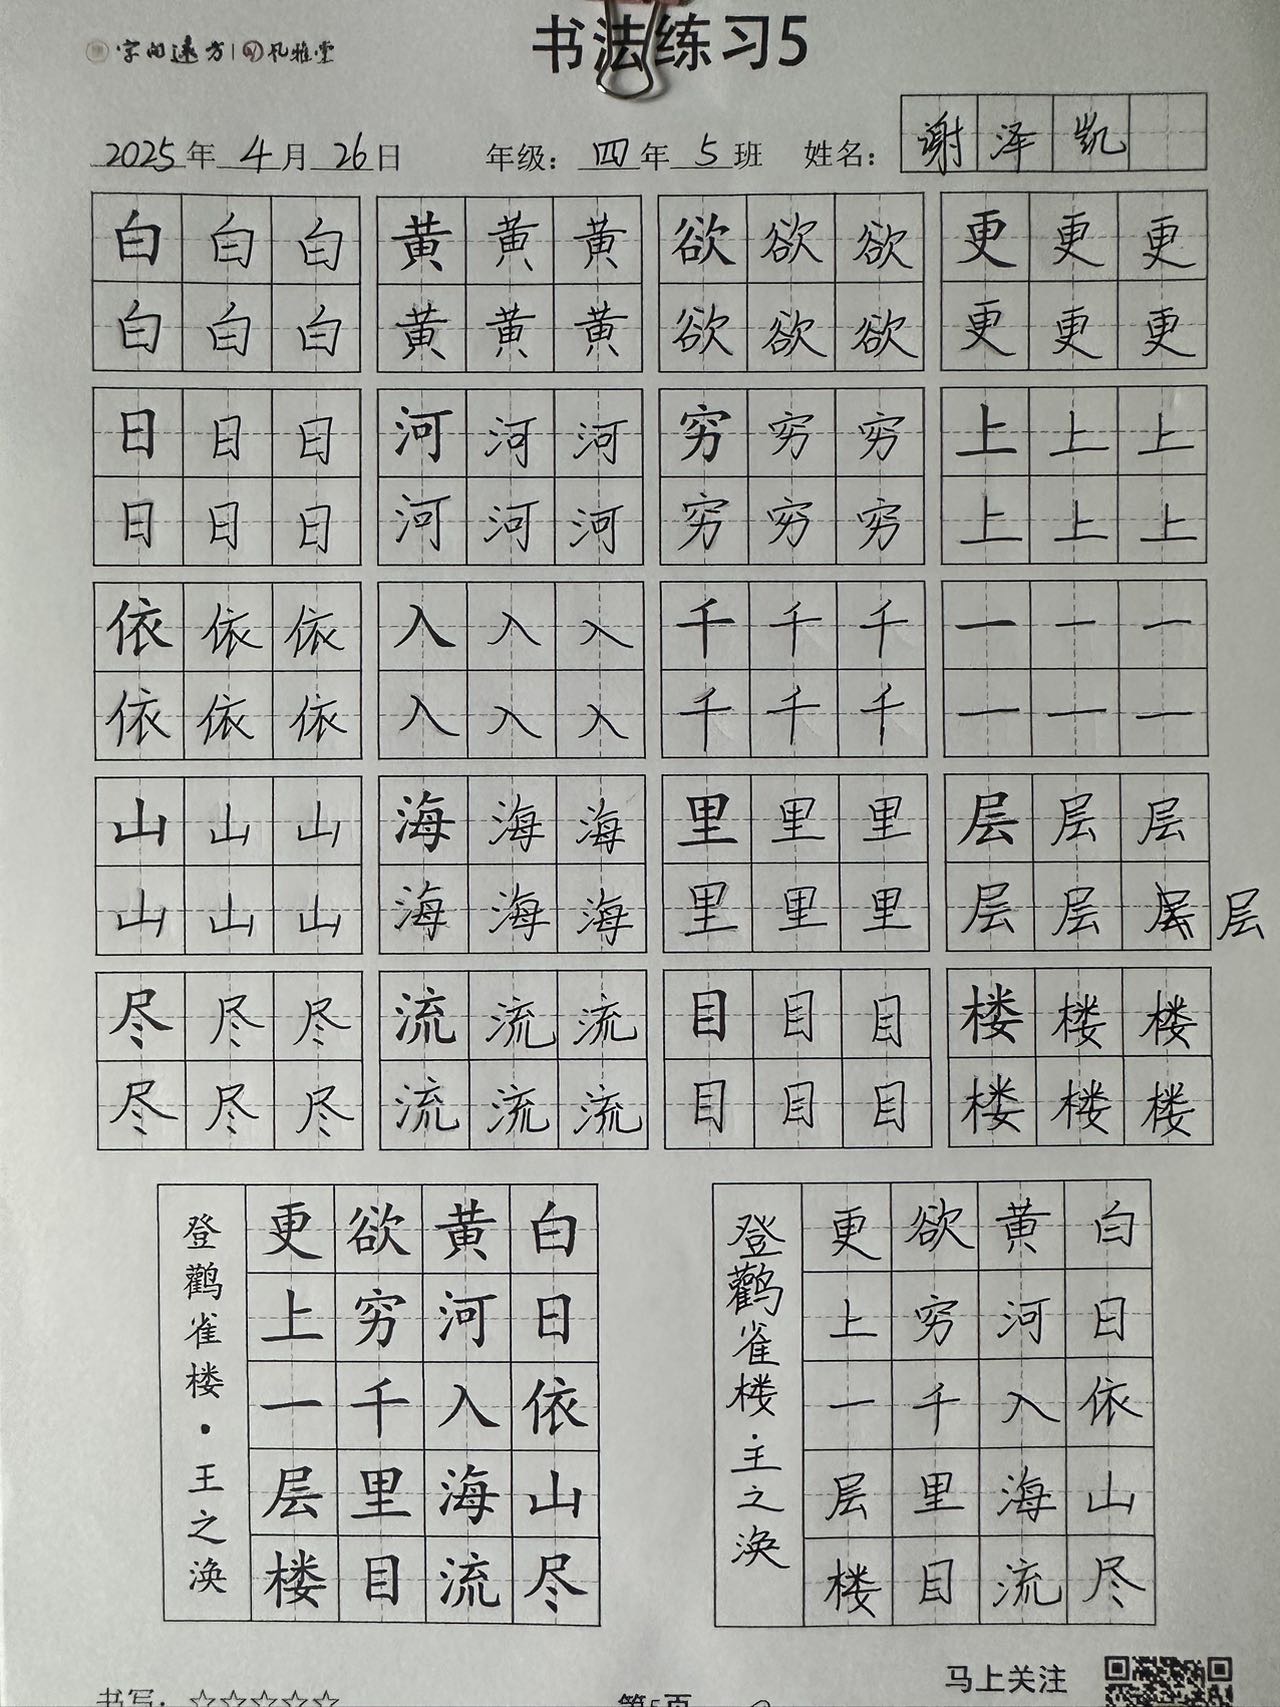 字间远方 | 孔雅堂
书法练习5
2025年 4月 26日 年级：四年 5班 姓名：谢泽凯
白白白 黄黄黄 欲欲欲 更更更
白白白 黄黄黄 欲欲欲 更更更
日日日 河河河 穷穷穷 上上上
日日日 河河河 穷穷穷 上上上
依依依 入入入 千千千 一一一
依依依 入入入 千千千 一一一
山山山 海海海 里里里 层层层
山山山 海海海 里里里 层层层层
尽尽尽 流流流 目目目 楼楼楼
尽尽尽 流流流 目目目 楼楼楼
白日依山尽
黄河入海流
欲穷千里目
更上一层楼
登鹳雀楼·王之涣
白日依山尽
黄河入海流
欲穷千里目
更上一层楼
登鹳雀楼·王之涣
马上关注
书写：☆☆☆☆☆ 第5页